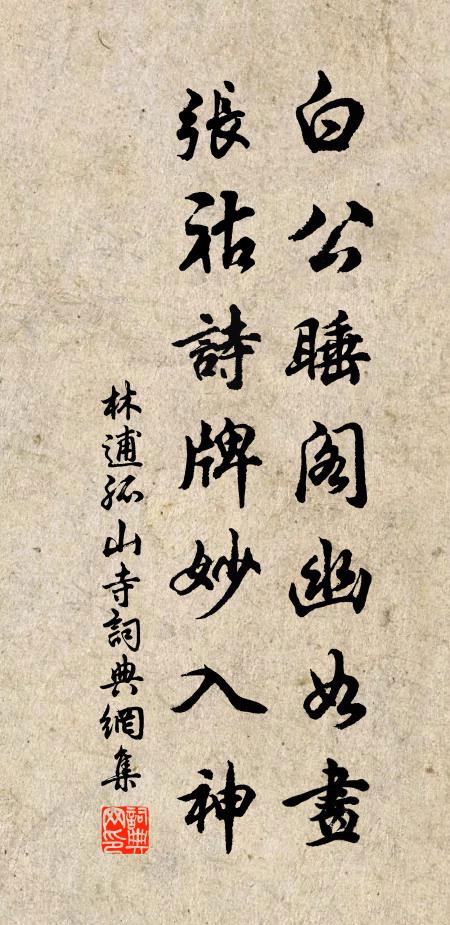 白公睡阁幽如畫
張祜詩牌妙入神
林逋孤山寺詞典網集
詞典網印